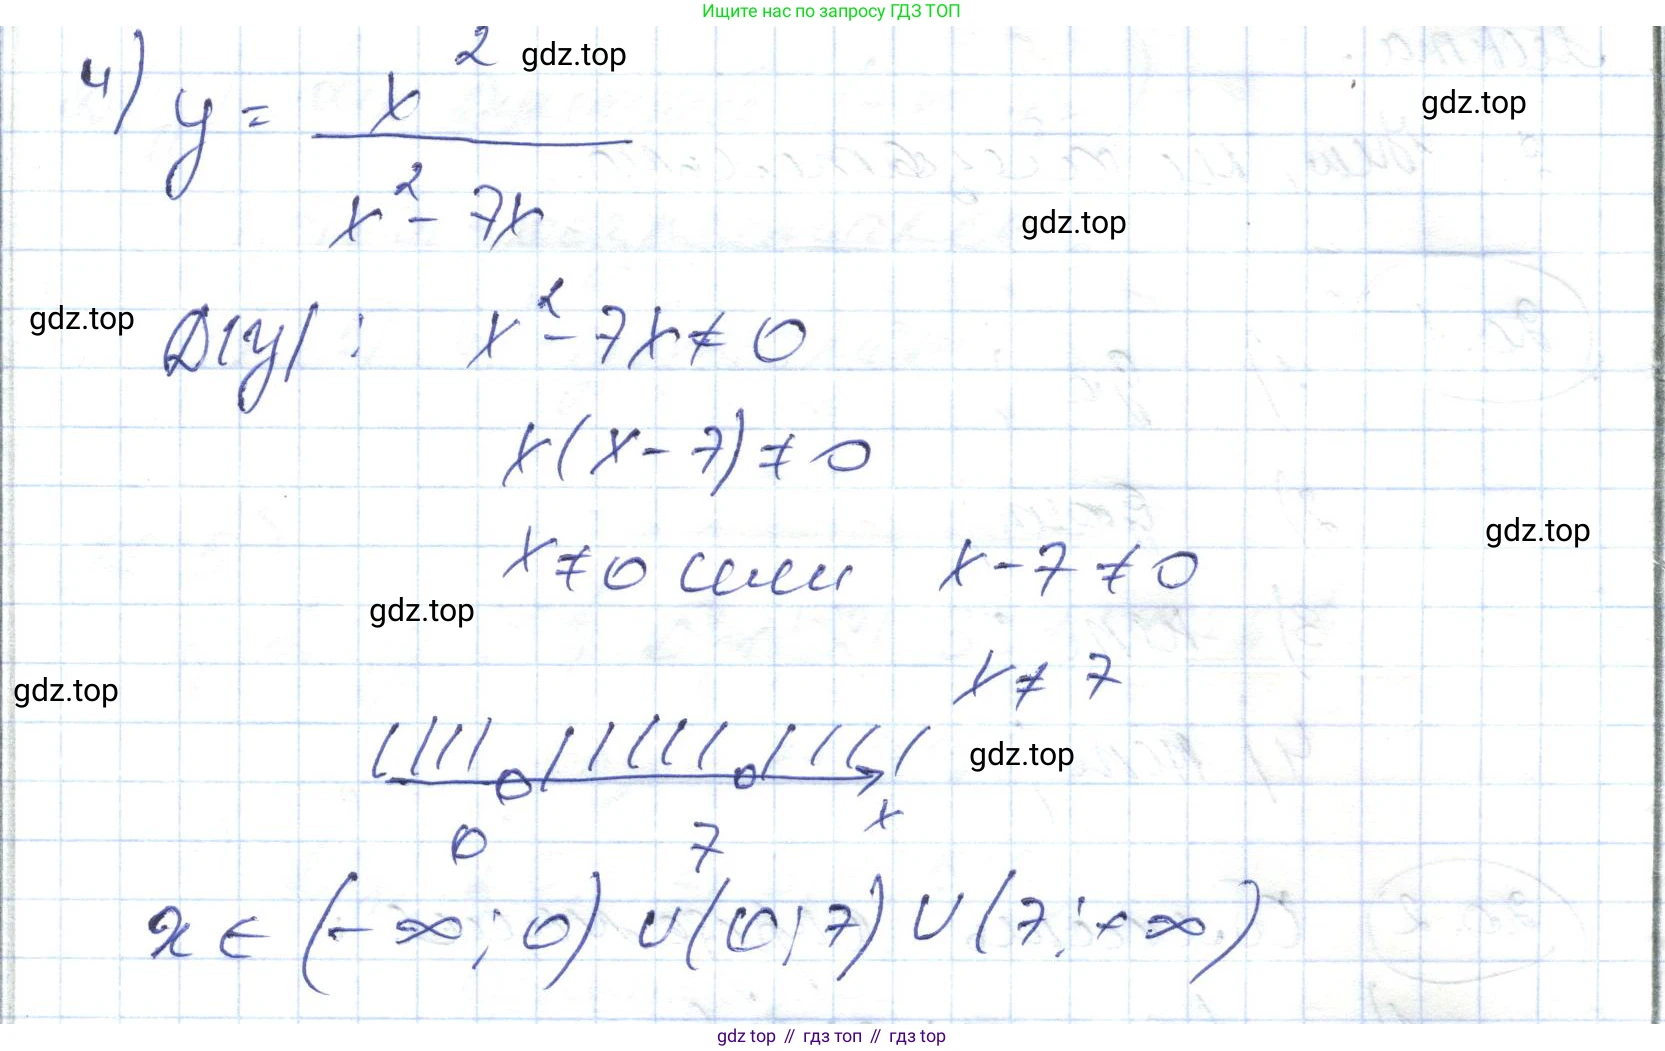 Ищите нас по запросу ГДЗ ТОП
4) y = x² / (x² - 7x)
gdz.top
gdz.top
gdz.top
gdz.top
Д(y): x² - 7x ≠ 0
x(x - 7) ≠ 0
gdz.top
x ≠ 0 или x - 7 ≠ 0
gdz.top
gdz.top
x ≠ 7
gdz.top
0 7 x
x ∈ (-∞; 0) ∪ (0; 7) ∪ (7; +∞)
gdz top // гдз топ // gdz top